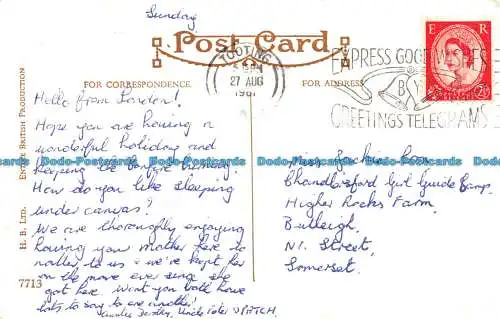 Sunday
Post Card
TOOTING
27 AUG
1961
EXPRESS GOOD WISHES
BY
GREETINGS TELEGRAMS
E R
FOR CORRESPONDENCE
FOR ADDRESS
H. B. LTD. ENTIRE BRITISH PRODUCTION
7713
Hello from London!
Hope you are having a
wonderful holiday and
keeping the
How do you like sleeping
under canvas?
We are thoroughly enjoying
having your mother here to
natter to us - we've kept her
on the move ever since she
got here. Went you both have
lots to say to one another!
Uncle Peter
Miss
Chandlersford Girl Guide Camp,
Higher Rocks Farm,
Butleigh,
Nr. Street,
Somerset.
Dodo-Postcards Dodo-Postcards Dodo-Postcards Dodo-Postcards Dodo-Postcards